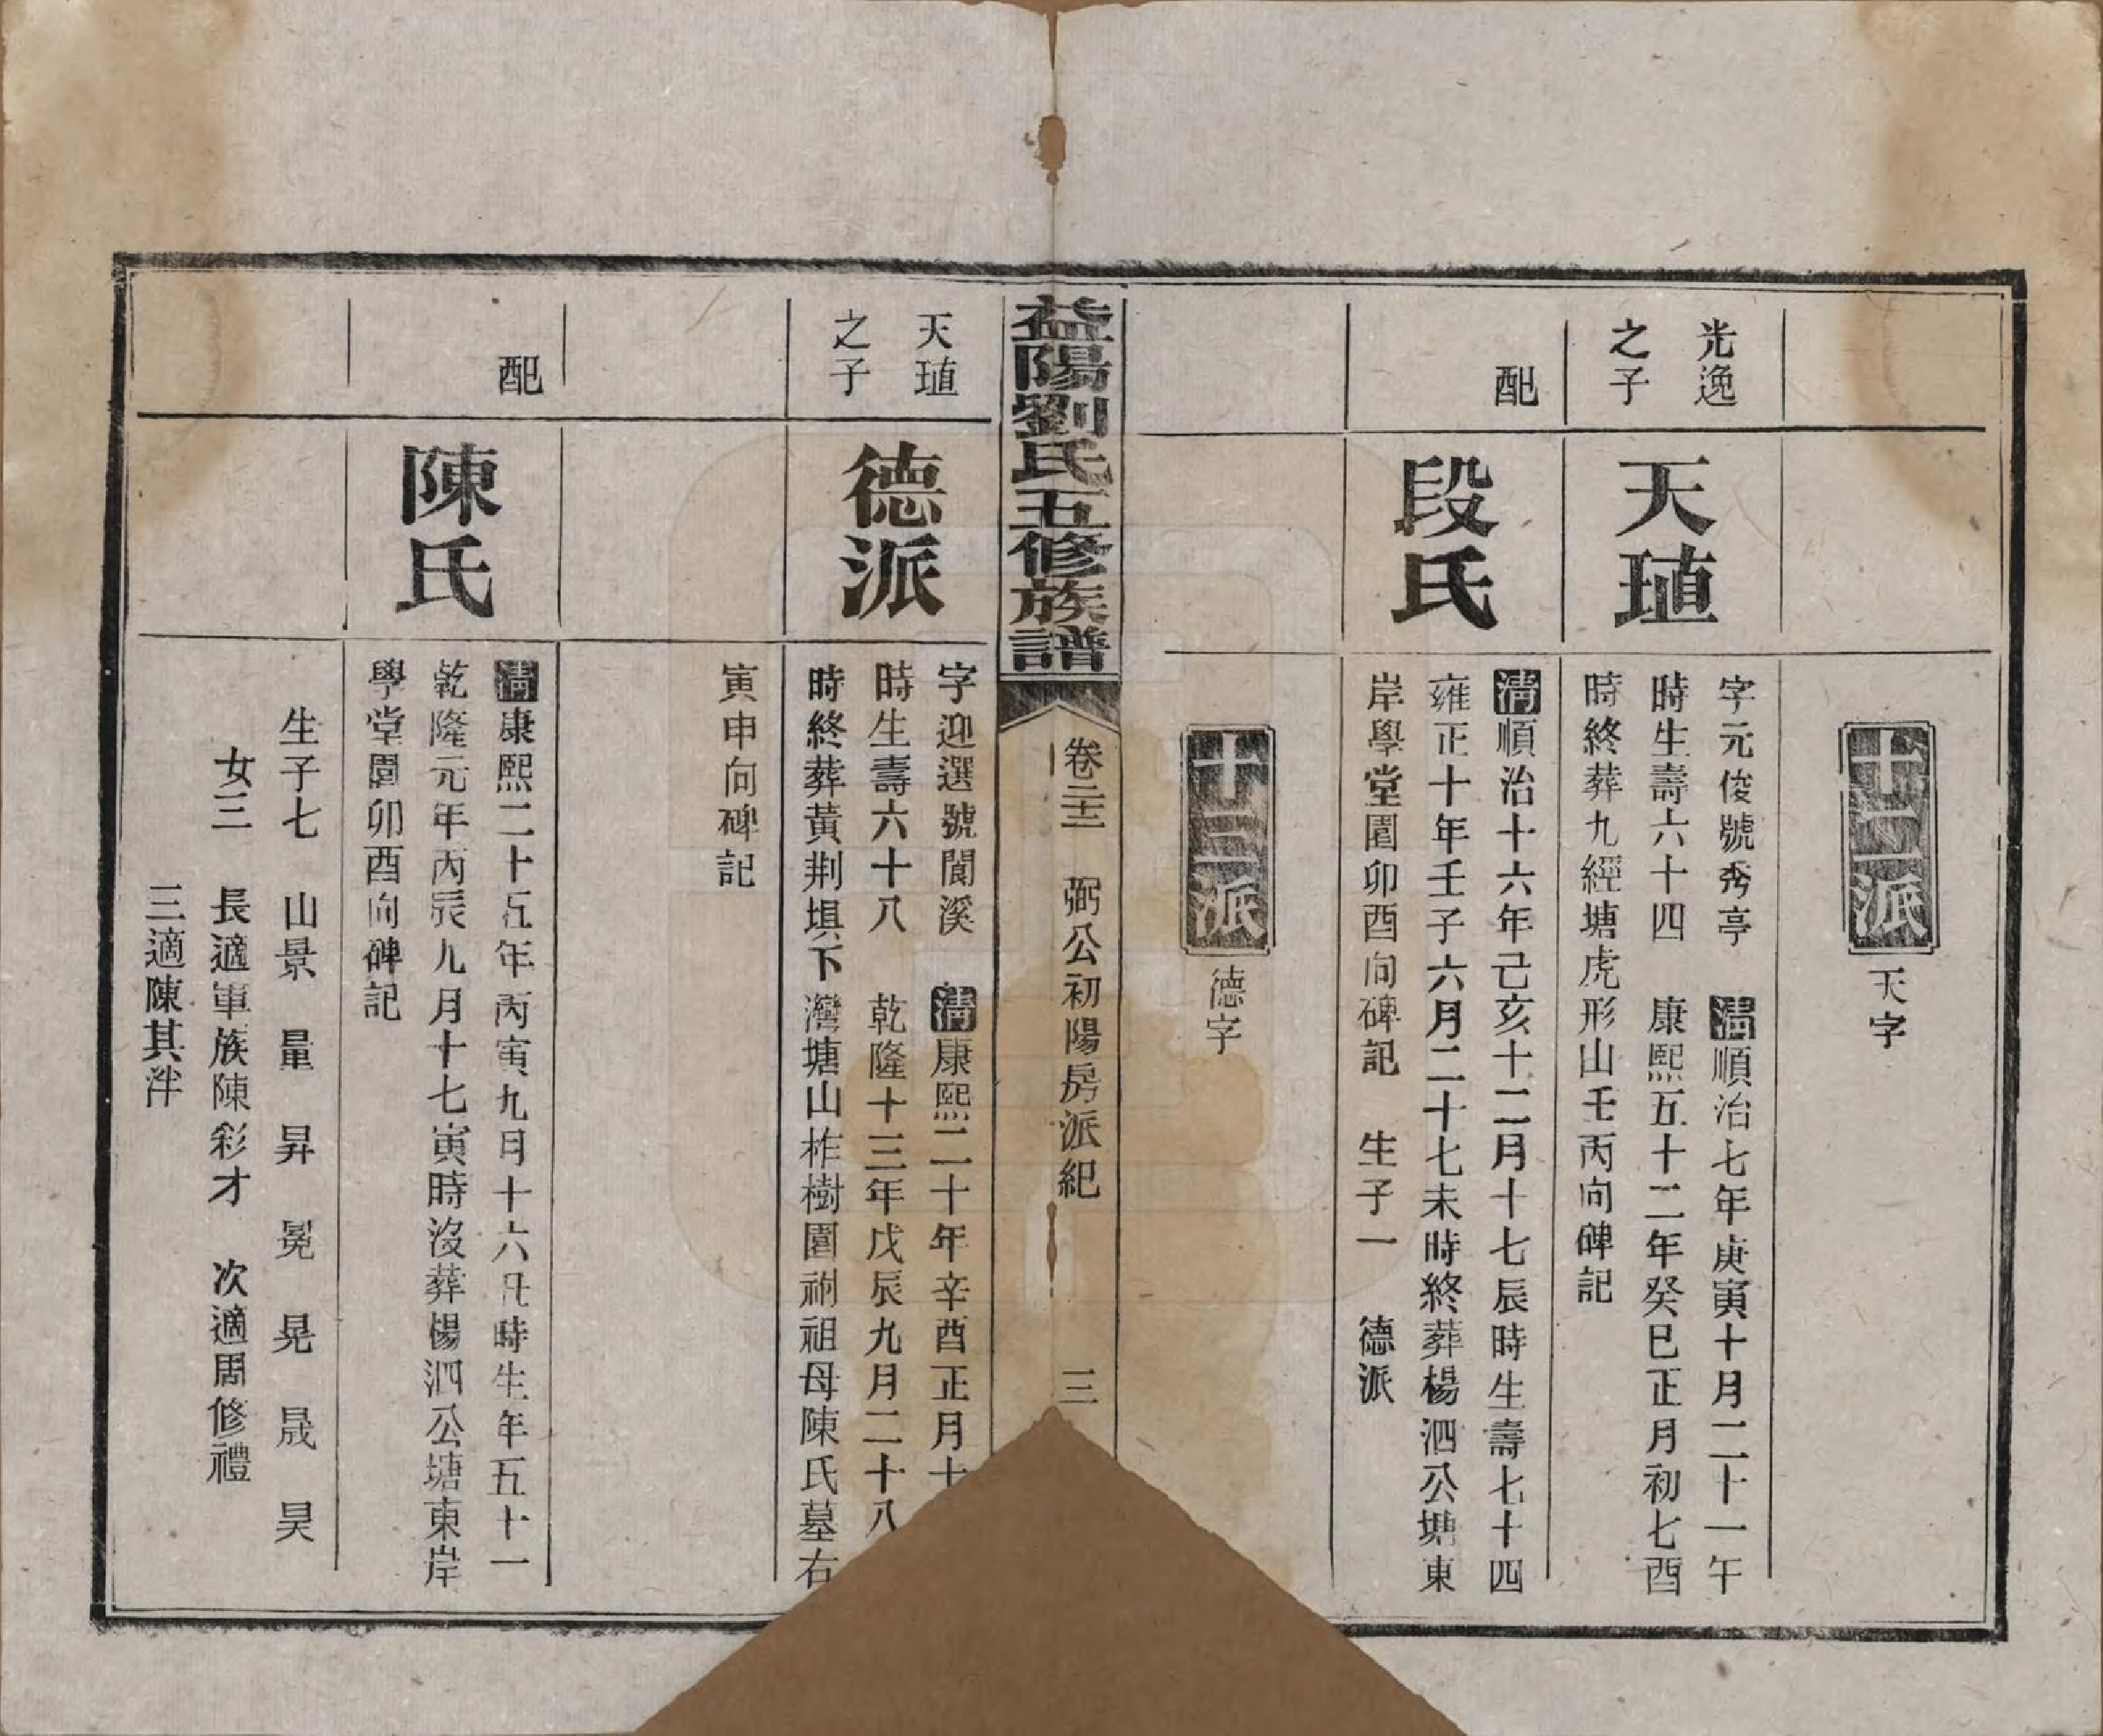 十二派
天字
光逸
之子
天㻏
字元俊號秀亭 清順治七年庚寅十月二十一午
時生壽六十四 康熙五十二年癸巳正月初七酉
時終葬九經塘虎形山壬丙向碑記
配
段氏
清順治十六年己亥十二月十七辰時生壽七十四
雍正十年壬子六月二十七未時終葬楊泗公塘東
岸學堂園卯酉向碑記 生子一 德派
十三派
德字
益陽劉氏五修族譜
卷二十二 弼公初陽房派紀 三
天㻏
之子
德派
字迎選號閬溪 清康熙二十年辛酉正月十
時生壽六十八 乾隆十三年戊辰九月二十八
時終葬黃荆垻下灣塘山柞樹園祔祖母陳氏墓右
寅申向碑記
配
陳氏
清康熙二十五年丙寅九月十六丑時生年五十一
乾隆元年丙辰九月十七寅時沒葬楊泗公塘東岸
學堂園卯酉向碑記
生子七 山景 量 昇 冕 晃 晟 昊
女三 長適軍族陳彩才 次適周修禮
三適陳其泮